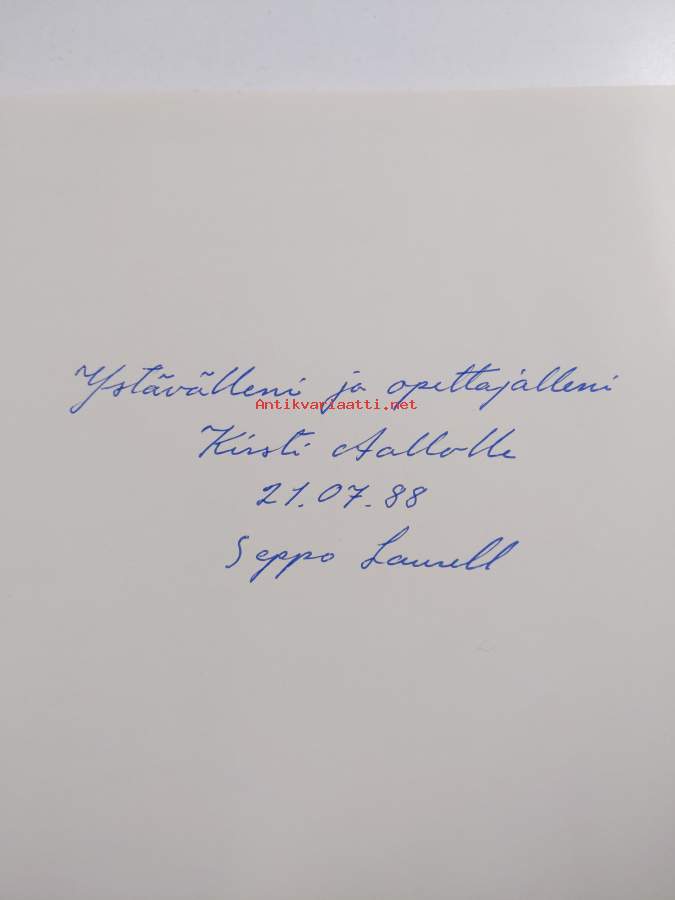 Ystävälleni ja opettajalleni
Antikvariaatti.net
Kirsti Aallolle
21.07.88
Seppo Laurell